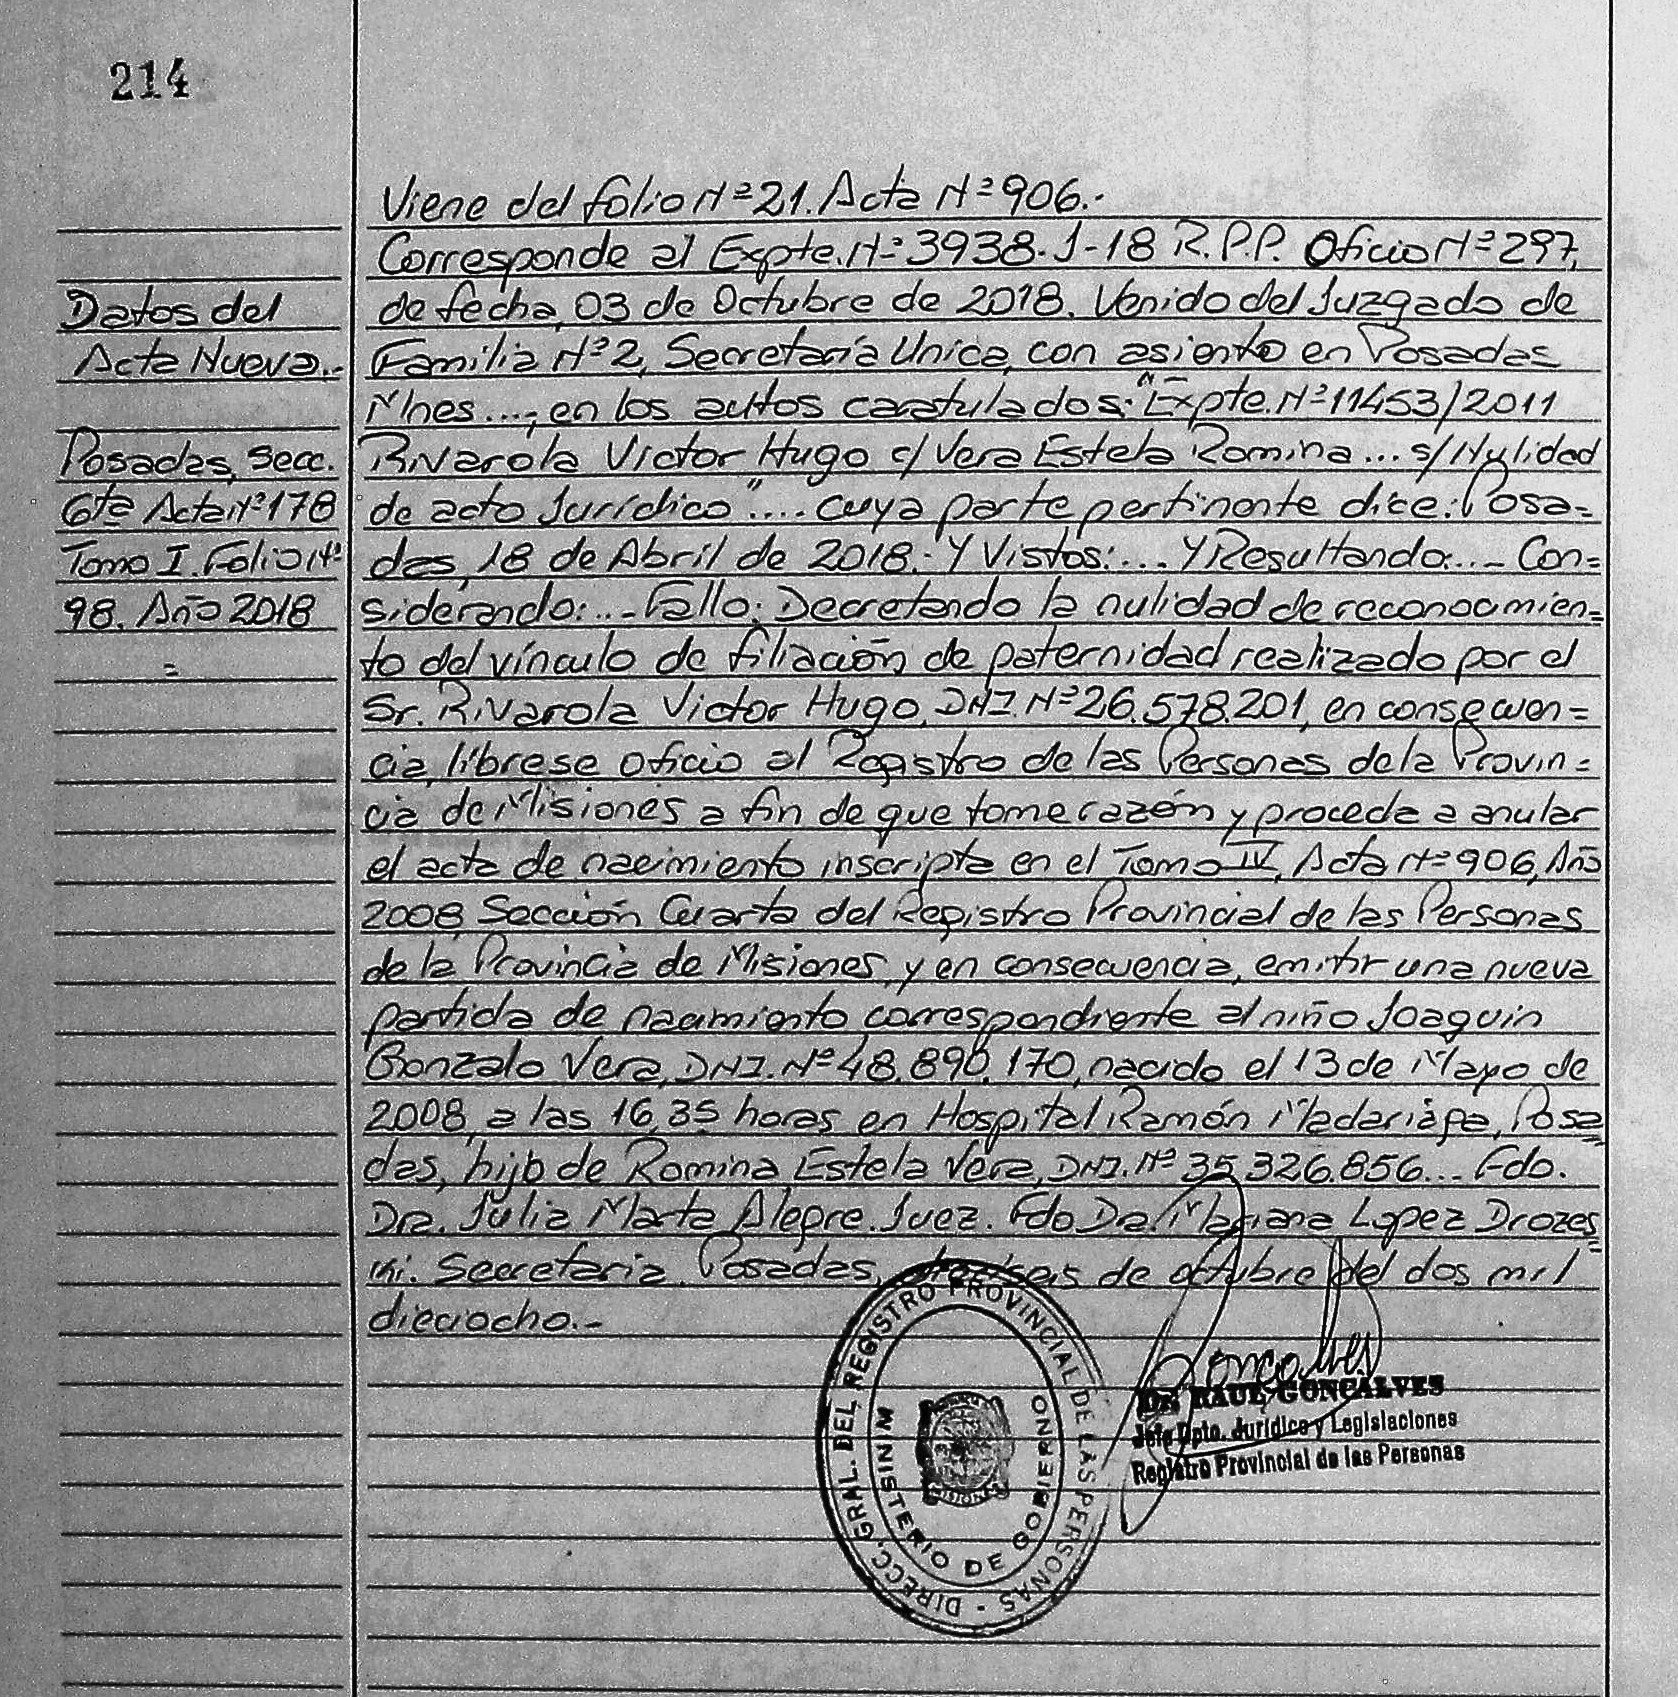 214
Viene del folio Nº 21. Acta Nº 906.-
Corresponde al Expte. Nº 3938-J-18 R.P.P. Oficio Nº 297,
de fecha, 03 de Octubre de 2018. Venido del Juzgado de
Familia Nº 2, Secretaría Unica, con asiento en Posadas
Mnes....; en los autos caratulados: "Expte. Nº 11453/2011
Rivarola Victor Hugo c/ Vera Estela Romina... s/ Nulidad
de acto Jurídico".... cuya parte pertinente dice: Posa=
das, 18 de Abril de 2018.- Y Vistos:.... Y Resultando:...- Con=
siderando:...- Fallo: Decretando la nulidad de reconocimien=
to del vínculo de filiación de paternidad realizado por el
Sr. Rivarola Victor Hugo, DNI. Nº 26.578.201, en consecuen=
cia, líbrese oficio al Registro de las Personas de la Provin=
cia de Misiones a fin de que tome razón y proceda a anular
el acta de nacimiento inscripta en el Tomo IV, Acta Nº 906, Año
2008, Sección Cuarta del Registro Provincial de las Personas
de la Provincia de Misiones, y en consecuencia, emitir una nueva
partida de nacimiento correspondiente al niño Joaquin
Gonzalo Vera, DNI. Nº 48.890.170, nacido el 13 de Mayo de
2008, a las 16,35 horas en Hospital Ramón Madariaga, Posa=
das, hijo de Romina Estela Vera, DNI. Nº 35.326.856... Fdo.
Dra. Julia Marta Alegre. Juez. Fdo Dra. Mariana Lopez Drozes=
ki. Secretaria. Posadas, de octubre del dos mil
dieciocho.-
Datos del
Acta Nueva.-
Posadas, Secc.
6ta Acta Nº 178
Tomo I. Folio Nº
98. Año 2018
=
DIRECC. GRAL. DEL REGISTRO PROVINCIAL DE LAS PERSONAS -
MINISTERIO DE GOBIERNO
MISIONES
Goncalves
Dr. RAUL GONCALVES
Jefe Dpto. Jurídico y Legislaciones
Registro Provincial de las Personas